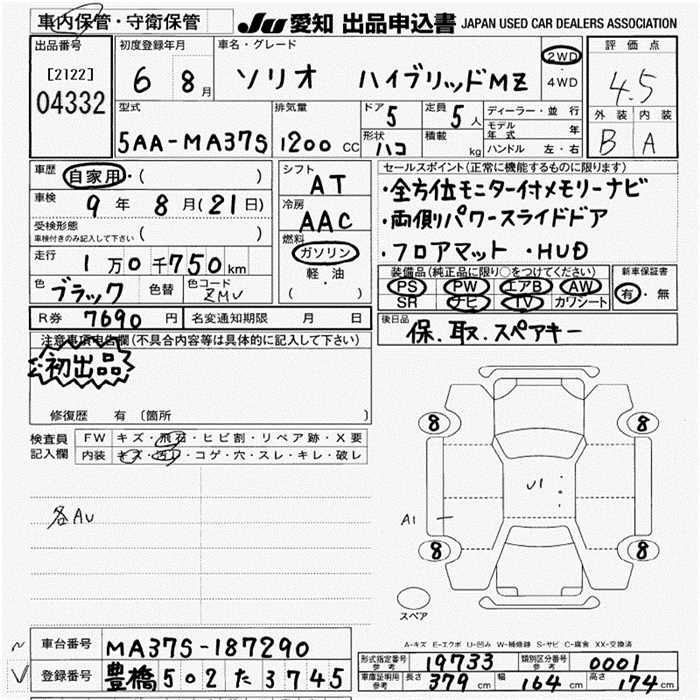 車内保管・守衛保管 JU 愛知 出品申込書 JAPAN USED CAR DEALERS ASSOCIATION
出品番号 初度登録年月 車名・グレード 評価点
[2122] 6 8月 ソリオ ハイブリッドMZ 2WD・4WD 4.5
04332
型式 排気量 ドア 5 定員 5人 ディーラー・並行 外装 内装
5AA-MA37S 1200 CC 形状 ハコ 積載 kg モデル年式 年 B A
ハンドル 左・右
車歴 自家用・( ) シフト AT セールスポイント(正常に機能するものに限ります)
車検 9年 8月(21日) 冷房 AAC ・全方位モニター付メモリーナビ
受検形態 ( ) ・両側パワースライドドア
車検付きのみ記入して下さい
燃料 ガソリン ・フロアマット ・HUD
走行 1万0千750km 軽油 装備品(純正品に限り○をつけてください) 新車保証書
色 ブラック 色替 色コード ZMV ( ) PS PW エアB AW 有・無
SR ナビ TV カワシート
R券 7690円 名変通知期限 月 日 後日品
保.取.スペアキー
注意事項申告欄(不具合内容等は具体的に記入して下さい)
初出品
修復歴 有 〔箇所 〕
検査員記入欄 FW キズ・飛石・ヒビ割・リペア跡・X要
内装 キズ・汚レ・コゲ・穴・スレ・キレ・破レ
8 8
U1
各AU A1
8 8
スペア
A-キズ E-エクボ U-凹み W-補修跡 S-サビ C-腐食 XX-交換済
車台番号 MA37S-187290
型式指定番号 参考 19733 類別区分番号 参考 0001
登録番号 豊橋502た3745
車庫証明用 参考 長さ 379cm 幅 164cm 高さ 174cm